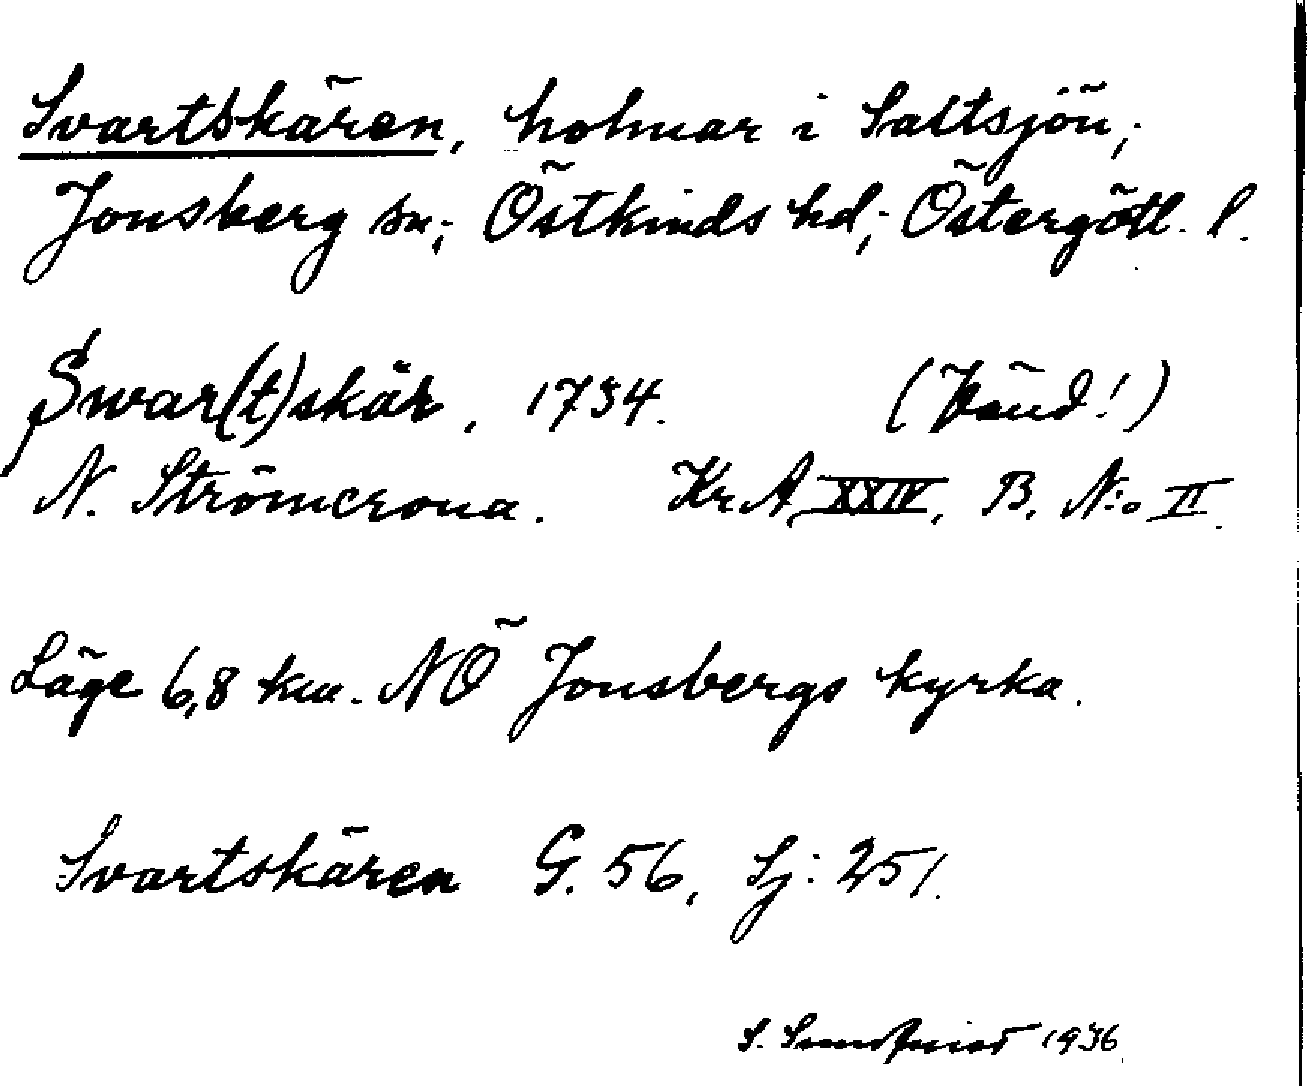 Svartskären, holmar i Saltsjön,;
Jonsberg sn,; Östkinds hd,; Östergötl. l.
Swar(t)skär, 1734. (Vänd!)
N. Strömcrona. Kr. A, XXIV, B. N:o II.
Läge 6,8 km. NÖ Jonsbergs kyrka.
Svartskären G. 56, Sj: 251.
S. Sundquist 1936